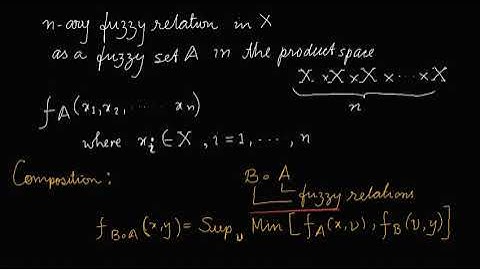 n-ary fuzzy relation in X
as a fuzzy set A in the product space
X × X × X × ... × X
n
f_A(x_1, x_2, ...... x_n)
where x_i ∈ X, i = 1, ..., n
Composition:
B o A
fuzzy relations
f_{BoA}(x,y) = Sup_v Min [f_A(x,v), f_B(v,y)]